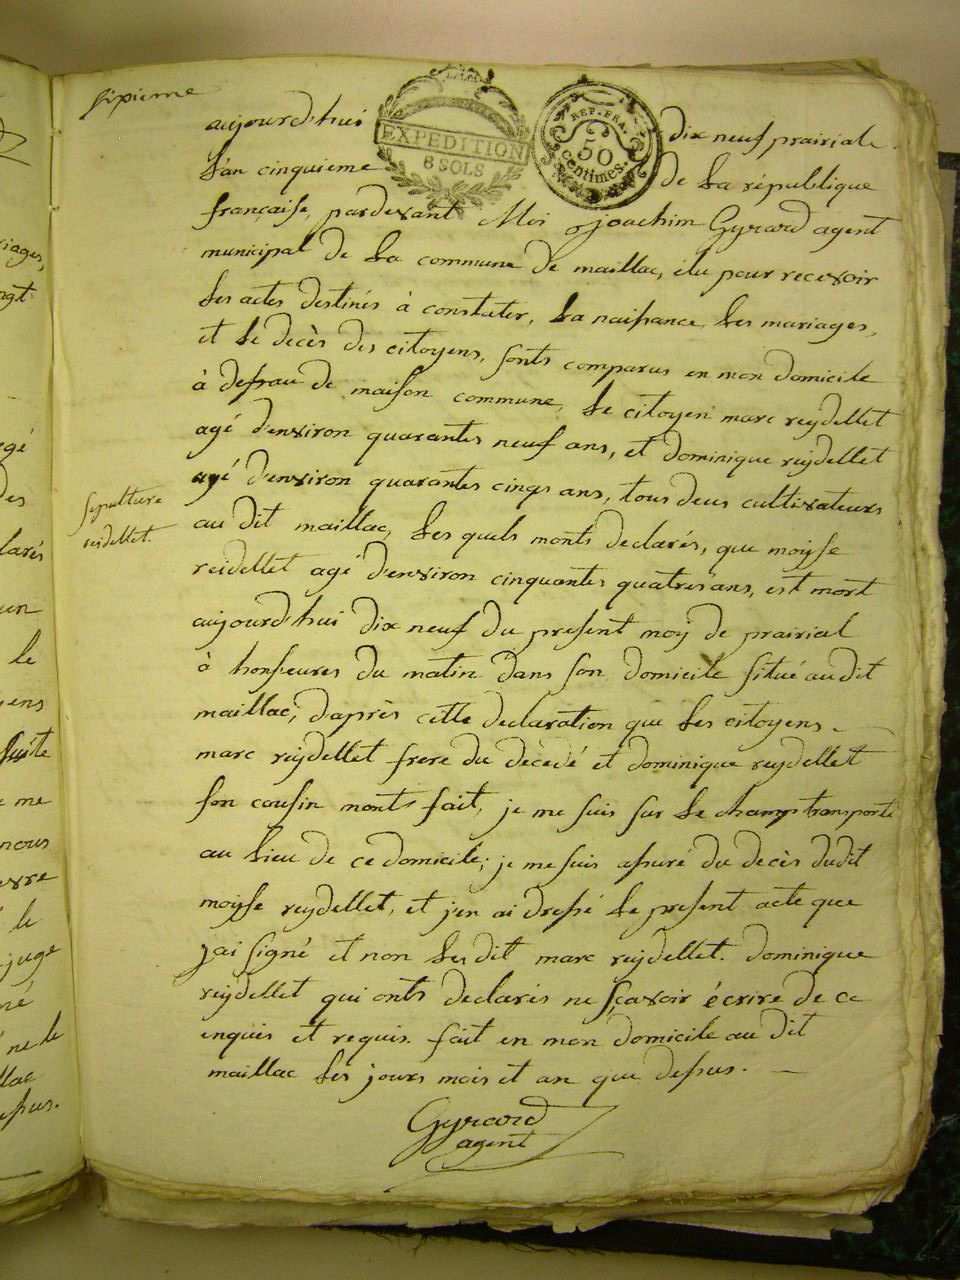 sixieme
EXPEDITION
8 SOLS
REP. FRA.
50
centimes.
aujourd'hui dix neuf prairial
l'an cinquieme de la république
française, pardevant Moi Joachim Gyrard agent
municipal de la commune de maillac, élu pour recevoir
les actes destinés à constater, la naissance les mariages,
et le decès des citoyens, sonts comparus en mon domicile
à defrau de maison commune, le citoyen marc reydellet
agé d'environ quarantes neuf ans, et dominique reydellet
agé d'environ quarantes cinqs ans, tous deus cultivateurs
au dit maillac, les quels monts declarés, que moysse
reidellet agé d'environ cinquantes quatres ans, est mort
aujourd'hui dix neuf du present moy de prairial
à honseures du matin dans son domicile situé au dit
maillac, daprès cette declaration que les citoyens
marc reydellet frere du décédé et dominique reydellet
son cousin monts fait, je me suis sur le champs transporté
au lieu de ce domicile; je me suis assuré du decès dudit
moysse reydellet, et j'en ai dressé le present acte que
j'ai signé et non les dit marc reydellet. dominique
reydellet qui onts declarés ne sçavoir écrire de ce
enquis et requis. fait en mon domicile au dit
maillac les jours mois et an que dessus.
Gyrard
agent
sepulture
reidellet.